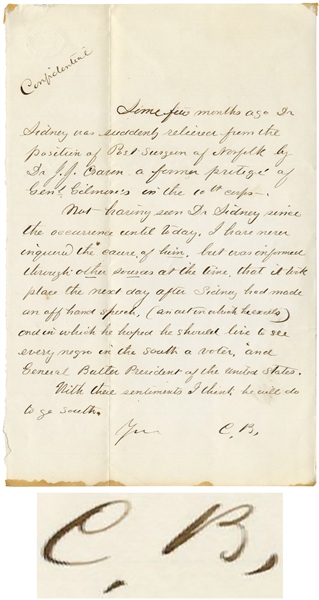 Confidential
Some few months ago Dr
Sidney was suddenly relieved from the
position of Post Surgeon of Norfolk by
Dr J. J. Craven a former protegé of
Genl. Gilmore's in the 10th corps—.
Not having seen Dr Sidney since
the occurrence until today, I have never
inquired the cause, of him, but was informed
through other sources at the time, that it took
place the next day after Sidney had made
an off hand speech, (an art in which he excels)
and in which he hoped he should live to see
every negro in the South a voter, and
General Butler President of the United States.
With these sentiments I think he will do
to go South.
C. B,
C. B,